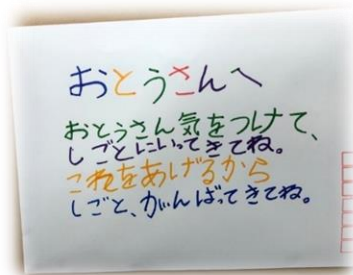 おとうさんへ
おとうさん気をつけて、
しごとにいってきてね。
これをあげるから
しごと、がんばってきてね。